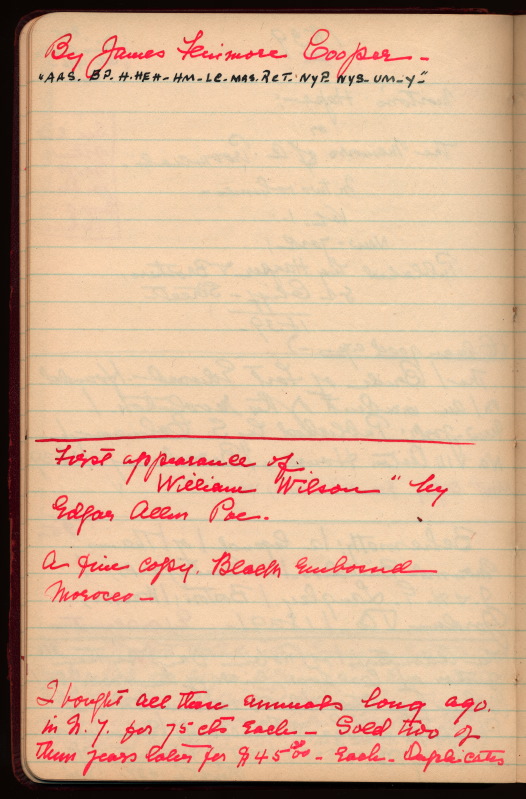 By James Fenimore Cooper -
"AAS. BP. H. HEH - HM - LC - MAS. RCT. NYP. NYS - UM - Y -"
First appearance of
William Wilson" by
Edgar Allen Poe.
A fine copy. Black Embossed
Morocco -
I bought all these annuals long ago.
in N.Y. for 75 cts Each - Sold two of
them years later for $45.00 - Each - Duplicates